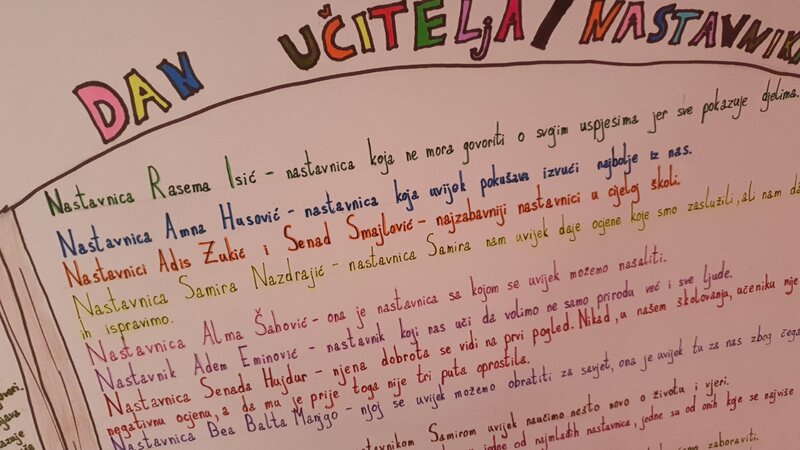 DAN UČITELJA/NASTAVNIKA
Nastavnica Rasema Isić - nastavnica koja ne mora govoriti o svojim uspjesima jer sve pokazuje djelima.
Nastavnica Amna Husović - nastavnica koja uvijek pokušava izvući najbolje iz nas.
Nastavnici Adis Zukić i Senad Smajlović - najzabavniji nastavnici u cijeloj školi.
Nastavnica Samira Nazdrajić - nastavnica Samira nam uvijek daje ocjene koje smo zaslužili, ali nam da
ih ispravimo.
Nastavnica Alma Šahović - ona je nastavnica sa kojom se uvijek možemo našaliti.
Nastavnik Adem Eminović - nastavnik koji nas uči da volimo ne samo prirodu već i sve ljude.
Nastavnica Senada Hujdur - njena dobrota se vidi na prvi pogled. Nikad, u našem školovanja, učeniku nije
negativnu ocjenu, a da mu je prije toga nije tri puta oprostila.
Nastavnica Bea Balta Manjgo - njoj se uvijek možemo obratiti za savjet, ona je uvijek tu za nas zbog čega
Samirom uvijek naučimo nešto novo o životu i vjeri.
jedne od najmlađih nastavnica, jedne su od onih koje se najviše
zaboraviti.